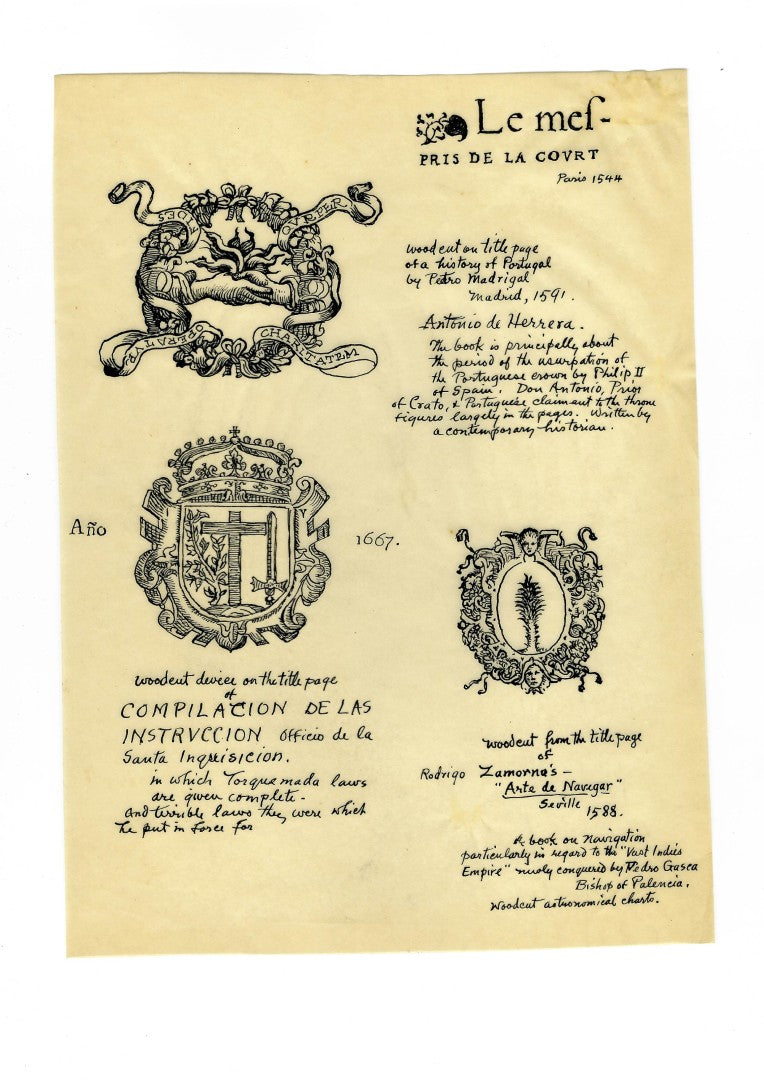 Le meſ-
PRIS DE LA COVRT
Paris 1544
FIDES
QVÆ PER
CHARITATEM
OPERATVR
woodcut on title page
of a history of Portugal
by Pedro Madrigal
Madrid, 1591.
Antonio de Herrera.
The book is principally about
the period of the usurpation of
the Portuguese crown by Philip II
of Spain. Don Antonio, Prior
of Crato, a Portuguese claimant to the throne
figures largely in the pages. Written by
a contemporary historian.
Año
I Y
1667.
woodcut device on the title page
of
COMPILACION DE LAS
INSTRVCCION officio de la
Santa Inquisicion.
in which Torquemada laws
are given complete-
And terrible laws they were which
he put in force for
woodcut from the title page
of
Rodrigo Zamorna's-
"Arte de Navegar"
Seville
1588.
A book on navigation
particularly in regard to the "Vast Indies
Empire" newly conquered by Pedro Gasca
Bishop of Palencia.
Woodcut astronomical charts.